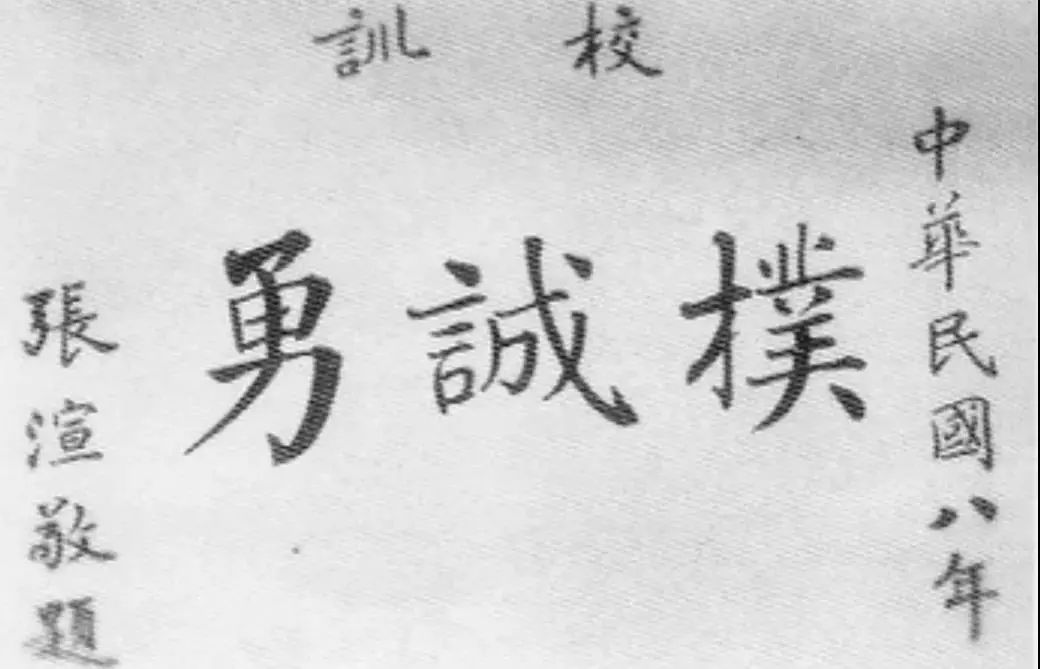 校訓
中華民國八年
樸誠勇
張渲敬題